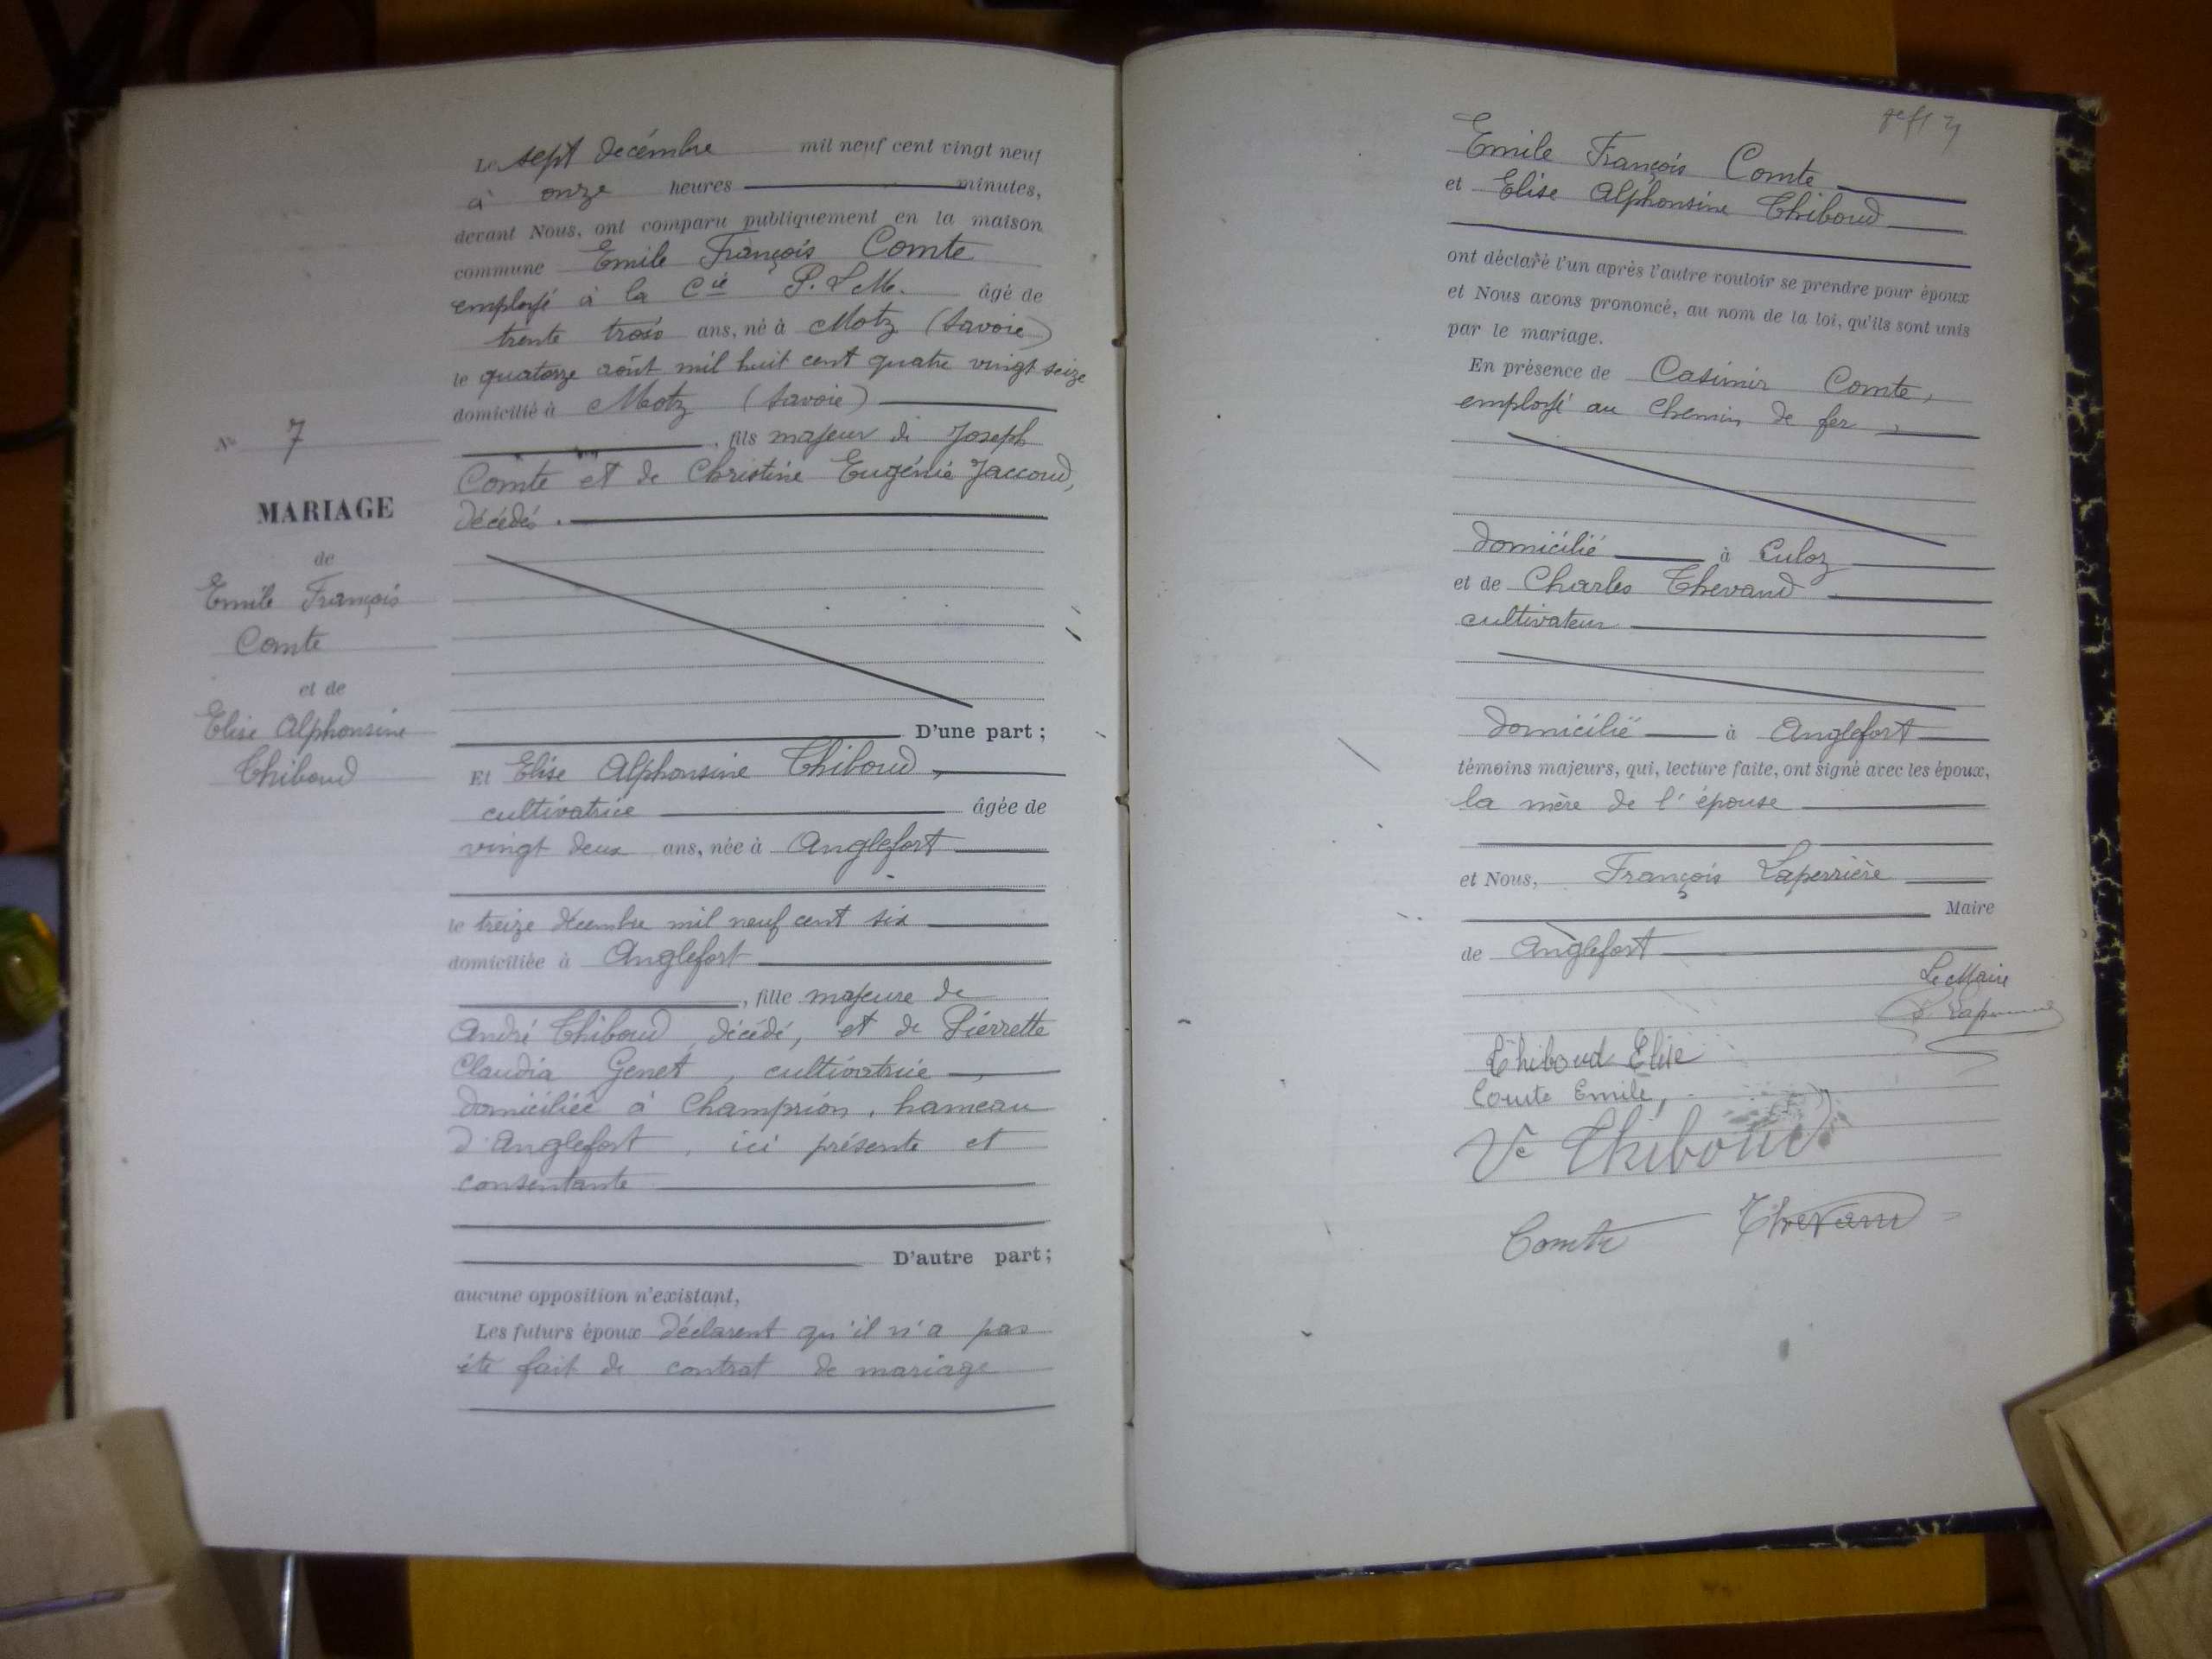 Le sept décembre mil neuf cent vingt neuf
à onze heures minutes,
devant Nous, ont comparu publiquement en la maison
commune Emile François Comte
employé à la Cie P.L.M. âgé de
trente trois ans, né à Motz (Savoie)
le quatorze août mil huit cent quatre vingt seize
domicilié à Motz (Savoie)
, fils majeur de Joseph
Comte et de Christine Eugénie Jaccoud,
décédés.
D'une part;
Et Elise Alphonsine Thiboud,
cultivatrice âgée de
vingt deux ans, née à Anglefort
le treize décembre mil neuf cent six
domiciliée à Anglefort
, fille majeure de
André Thiboud, décédé, et de Pierrette
Claudia Genet, cultivatrice,
domiciliée à Champrion, hameau
d'Anglefort, ici présente et
consentante
D'autre part;
aucune opposition n'existant,
Les futurs époux déclarent qu'il n'a pas
été fait de contrat de mariage
No 7
MARIAGE
de
Emile François
Comte
et de
Elise Alphonsine
Thiboud
Emile François Comte
et Elise Alphonsine Thiboud
ont déclaré l'un après l'autre vouloir se prendre pour époux
et Nous avons prononcé, au nom de la loi, qu'ils sont unis
par le mariage.
En présence de Casimir Comte,
employé au chemin de fer,
domicilié à Culoz
et de Charles Thevand
cultivateur
domicilié à Anglefort
témoins majeurs, qui, lecture faite, ont signé avec les époux,
la mère de l'épouse
et Nous, François Laperrière
Maire
de Anglefort
Le Maire
Thiboud Elise
Comte Emile,
Ve Thiboud
Comte Thevand